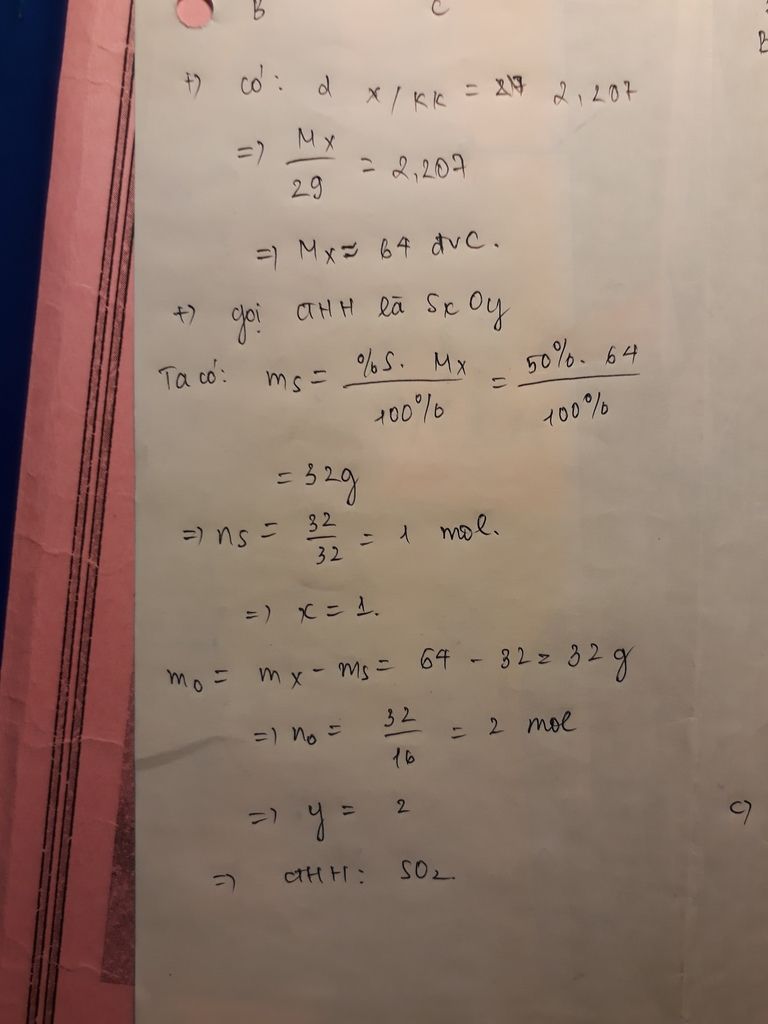 B C
B
+) có: d x/KK = 2,207
=) Mx/29 = 2,207
=) Mx ≈ 64 đvC.
+) gọi CTHH là SxOy
Ta có: ms = %S. Mx / 100% = 50%. 64 / 100%
= 32g
=) ns = 32/32 = 1 mol.
=) x = 1.
mo = mx - ms = 64 - 32 = 32g
=) no = 32/16 = 2 mol
=) y = 2
c)
=) CTHH: SO2.